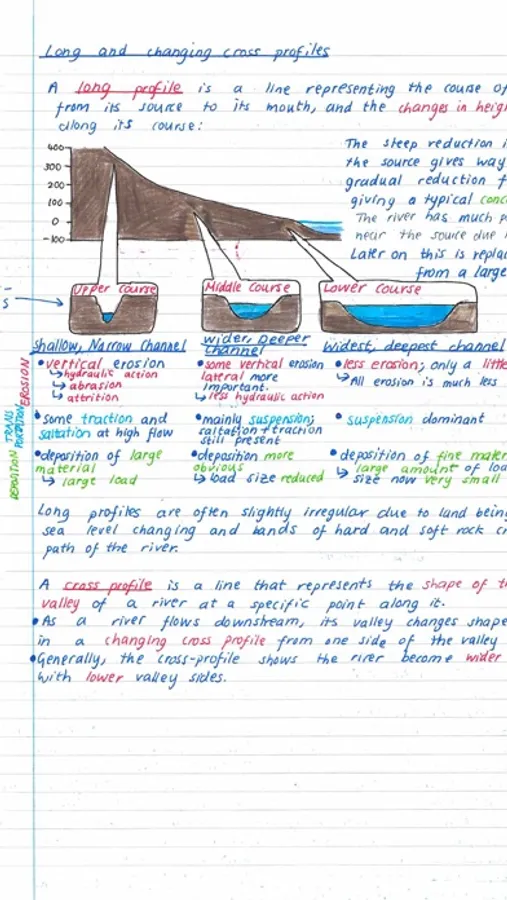 Long and changing cross profiles
A long profile is a line representing the course of
from its source to its mouth, and the changes in heigh
along its course:
The steep reduction i
the source gives way
gradual reduction f
giving a typical conc
The river has much p
near the source due
Later on this is replac
from a large
400
300
200
100
0
-100
S
Upper course
Middle course
Lower course
Shallow, Narrow Channel
wider, Deeper
channel
widest, deepest channel
EROSION
• vertical erosion
↳ hydraulic action
↳ abrasion
↳ attrition
• some vertical erosion
lateral more
important.
↳ less hydraulic action
• less erosion; only a little
↳ All erosion is much less
TRANS
PORTATION
• some traction and
saltation at high flow
• mainly suspension;
saltation + traction
still present
• suspension dominant
DEPOSITION
• deposition of large
material
↳ large load
• deposition more
obvious
↳ load size reduced
• deposition of fine mater
↳ large amount of loa
size now very small
Long profiles are often slightly irregular due to land being
sea level changing and bands of hard and soft rock cr
path of the river.
A cross profile is a line that represents the shape of t
valley of a river at a specific point along it.
• As a river flows downstream, its valley changes shape
in a changing cross profile from one side of the valley
• Generally, the cross-profile shows the river become wider
with lower valley sides.